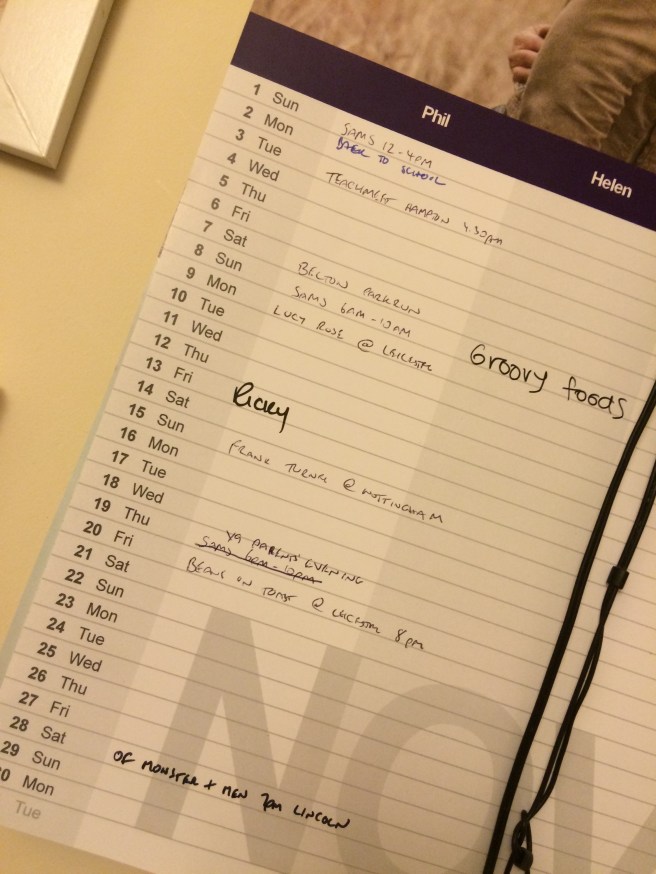 Phil
Helen
1 Sun SAMS 12-4PM
2 Mon BACK TO SCHOOL
3 Tue TEACHMEET HAMPTON 4.30PM
4 Wed
5 Thu
6 Fri
7 Sat BELTON PARKRUN
8 Sun SAMS 6AM-10AM
9 Mon LUCY ROSE @ LEICESTER
10 Tue Groovy foods
11 Wed
12 Thu
13 Fri Ricky
14 Sat
15 Sun FRANK TURNER @ NOTTINGHAM
16 Mon
17 Tue
18 Wed
19 Thu Y9 PARENTS EVENING
20 Fri SAMS 6PM-10PM
21 Sat BEANS ON TOAST @ LEICESTER 8PM
22 Sun
23 Mon
24 Tue
25 Wed
26 Thu
27 Fri
28 Sat
29 Sun OF MONSTER + MEN 7PM LINCOLN
30 Mon
Tue
NOV